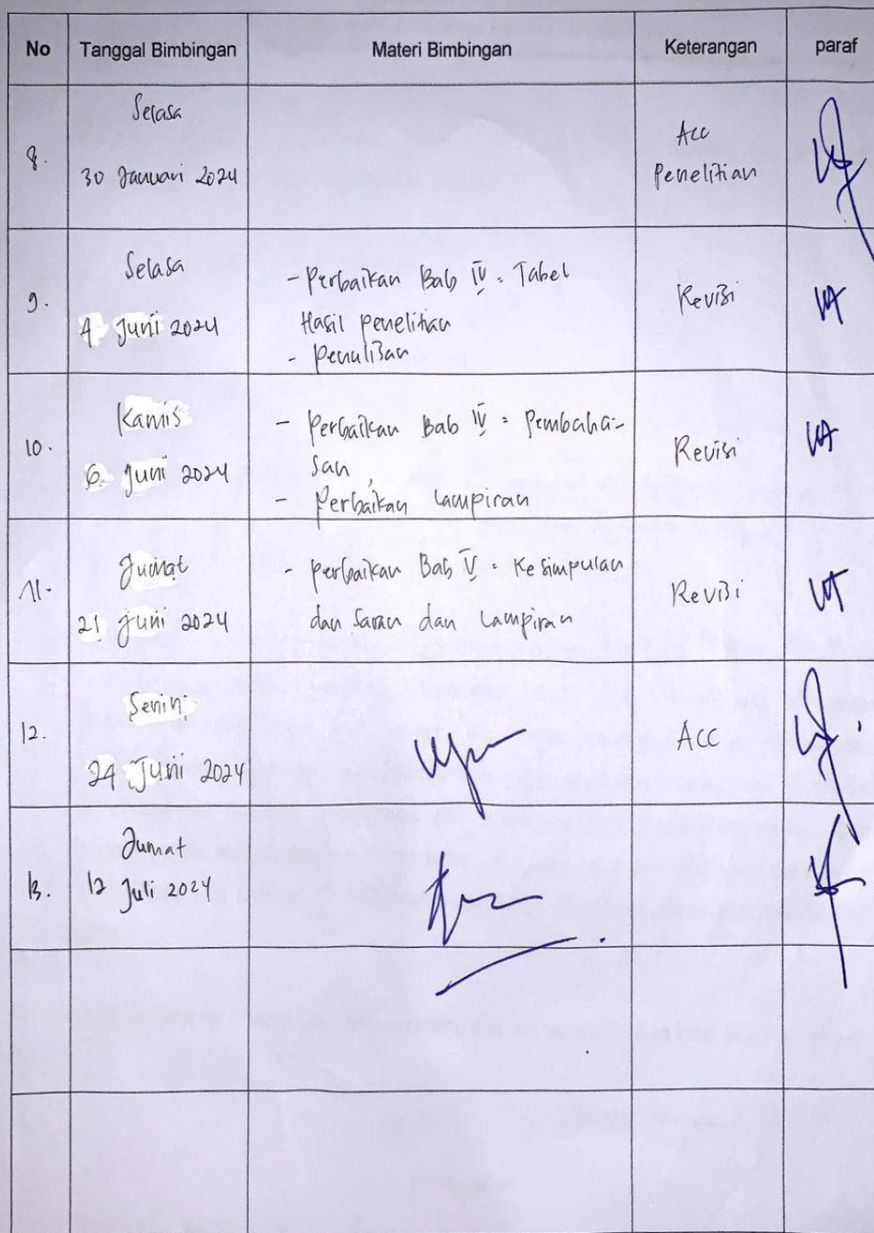 No Tanggal Bimbingan Materi Bimbingan Keterangan paraf
8.
Selasa
30 Januari 2024
Acc
Penelitian
9.
Selasa
4 Juni 2024
- Perbaikan Bab IV : Tabel
Hasil penelitian
- Penulisan
Revisi
10.
Kamis
6 Juni 2024
- Perbaikan Bab IV : Pembaha-
san
- Perbaikan Lampiran
Revisi
11.
Jumat
21 Juni 2024
- Perbaikan Bab V : Kesimpulan
dan Saran dan Lampiran
Revisi
12.
Senin
24 Juni 2024
ACC
13.
Jumat
12 Juli 2024